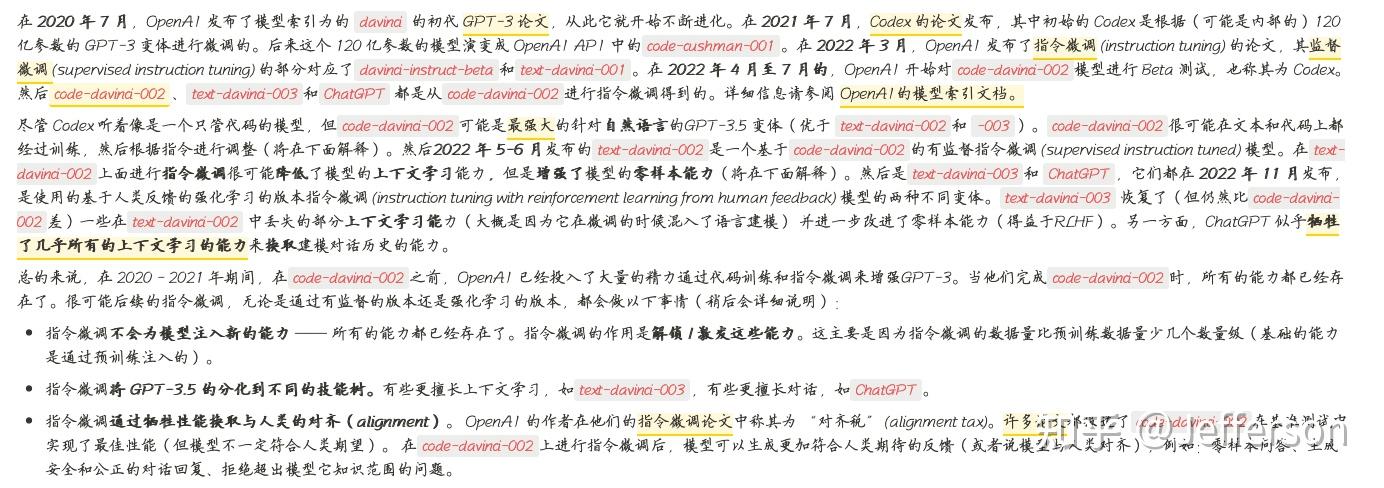 在 2020 年 7 月，OpenAI 发布了模型索引为的 davinci 的初代 GPT-3 论文，从此它就开始不断进化。在 2021 年 7 月，Codex 的论文发布，其中初始的 Codex 是根据（可能是内部的）120
亿参数的 GPT-3 变体进行微调的。后来这个 120 亿参数的模型演变成 OpenAI API 中的 code-cushman-001 。在 2022 年 3 月，OpenAI 发布了指令微调 (instruction tuning) 的论文，其监督
微调 (supervised instruction tuning) 的部分对应了 davinci-instruct-beta 和 text-davinci-001 。在 2022 年 4 月至 7 月的，OpenAI 开始对 code-davinci-002 模型进行 Beta 测试，也称其为 Codex。
然后 code-davinci-002 、 text-davinci-003 和 ChatGPT 都是从 code-davinci-002 进行指令微调得到的。详细信息请参阅 OpenAI 的模型索引文档。
尽管 Codex 听着像是一个只管代码的模型，但 code-davinci-002 可能是最强大的针对自然语言的GPT-3.5 变体（优于 text-davinci-002 和 -003 ）。 code-davinci-002 很可能在文本和代码上都
经过训练，然后根据指令进行调整（将在下面解释）。然后2022 年 5-6 月发布的 text-davinci-002 是一个基于 code-davinci-002 的有监督指令微调 (supervised instruction tuned) 模型。在 text-
davinci-002 上面进行指令微调很可能降低了模型的上下文学习能力，但是增强了模型的零样本能力（将在下面解释）。然后是 text-davinci-003 和 ChatGPT ，它们都在 2022 年 11 月发布，
是使用的基于人类反馈的强化学习的版本指令微调 (instruction tuning with reinforcement learning from human feedback) 模型的两种不同变体。 text-davinci-003 恢复了（但仍然比 code-davinci-
002 差）一些在 text-davinci-002 中丢失的部分上下文学习能力（大概是因为它在微调的时候混入了语言建模）并进一步改进了零样本能力（得益于RLHF）。另一方面，ChatGPT 似乎牺牲
了几乎所有的上下文学习的能力来换取建模对话历史的能力。
总的来说，在 2020 - 2021 年期间，在 code-davinci-002 之前，OpenAI 已经投入了大量的精力通过代码训练和指令微调来增强GPT-3。当他们完成 code-davinci-002 时，所有的能力都已经存
在了。很可能后续的指令微调，无论是通过有监督的版本还是强化学习的版本，都会做以下事情（稍后会详细说明）：
• 指令微调不会为模型注入新的能力 —— 所有的能力都已经存在了。指令微调的作用是解锁 / 激发这些能力。这主要是因为指令微调的数据量比预训练数据量少几个数量级（基础的能力
是通过预训练注入的）。
• 指令微调将 GPT-3.5 的分化到不同的技能树。有些更擅长上下文学习，如 text-davinci-003 ，有些更擅长对话，如 ChatGPT 。
• 指令微调通过牺牲性能换取与人类的对齐（alignment）。 OpenAI 的作者在他们的指令微调论文中称其为 “对齐税” (alignment tax)。许多 code-davinci-002 在基准测试中
实现了最佳性能（但模型不一定符合人类期望）。在 code-davinci-002 上进行指令微调后，模型可以生成更加符合人类期待的反馈（或者说模型与人类对齐），例如：零样本问答、生成
安全和公正的对话回复、拒绝超出模型它知识范围的问题。
知乎 @Jefferson